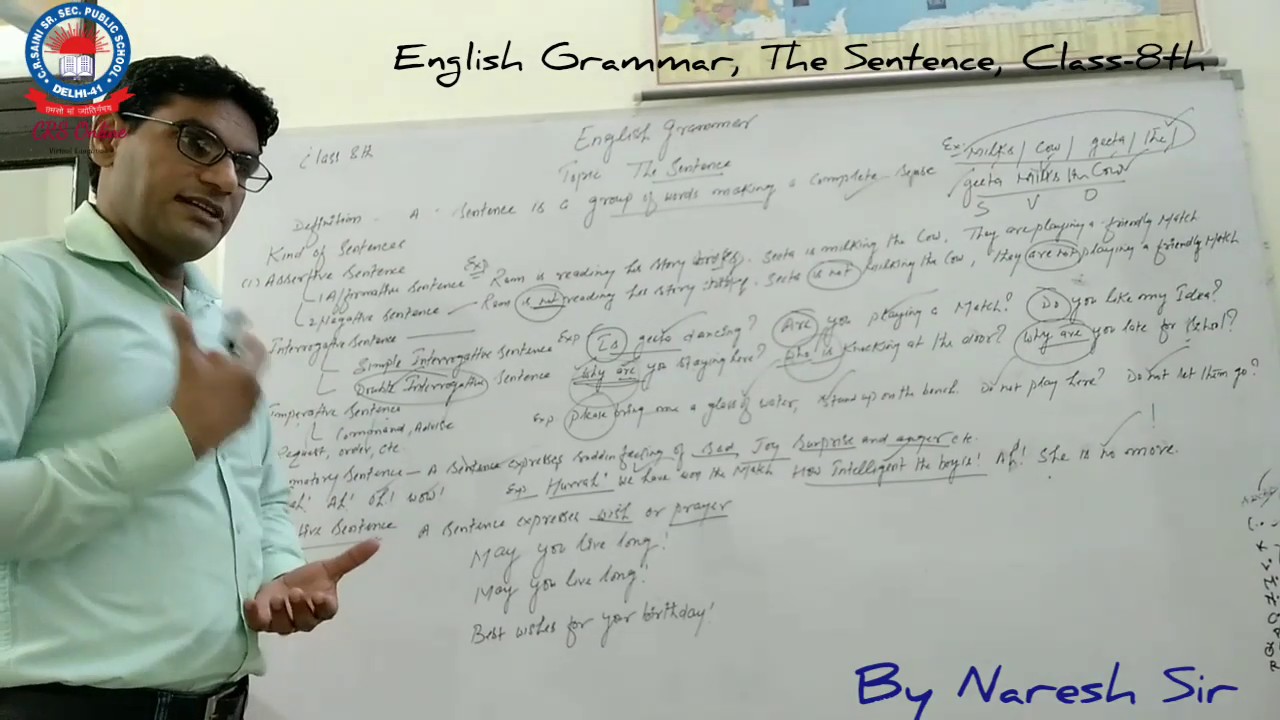 C.R.SAINI SR. SEC. PUBLIC SCHOOL
DELHI-41
तमसो मां ज्योतिर्गमय
CRS Online
English Grammar, The Sentence, Class-8th
Class 8th
English Grammar
Topic The Sentence
Ex: Milks / Cow / geeta / the /
geeta Milks the Cow
S V O
Definition - A Sentence is a group of words making a complete sense
Kind of Sentences
(1) Assertive Sentence
1 Affirmative Sentence Exp Ram is reading his story. Seeta is milking the Cow. They are playing a friendly Match
2 Negative Sentence Ram is not reading his story. Seeta is not milking the Cow, They are not playing a friendly Match
Interrogative Sentence
Simple Interrogative Sentence Exp Is geeta dancing? Are you playing a Match? Do you like my Idea?
Double Interrogative Sentence Why are you staying here? Who is knocking at the door? Why are you late for School?
Imperative Sentence Exp please bring me a glass of water, Stand up on the bench. Do not play here? Do not let them go?
Command, Advise
Request, order, etc
matory Sentence - A Sentence expresses sudden feeling of Sad, Joy Surprise and anger etc.
Ah! Oh! wow! Exp Hurrah! We have won the Match How Intelligent the boy is! Ah! She is no more.
tive Sentence A Sentence expresses wish or prayer
May you live long!
May you live long!
Best wishes for your birthday!
By Naresh Sir